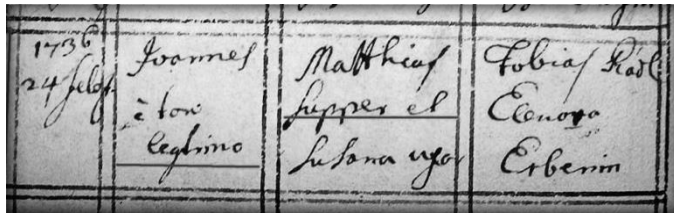 1736
24 Febr
Joannes
è toro
legitimo
Matthias
Supper et
Susana uxor
Tobias Kadl
Elenora
Erbenin